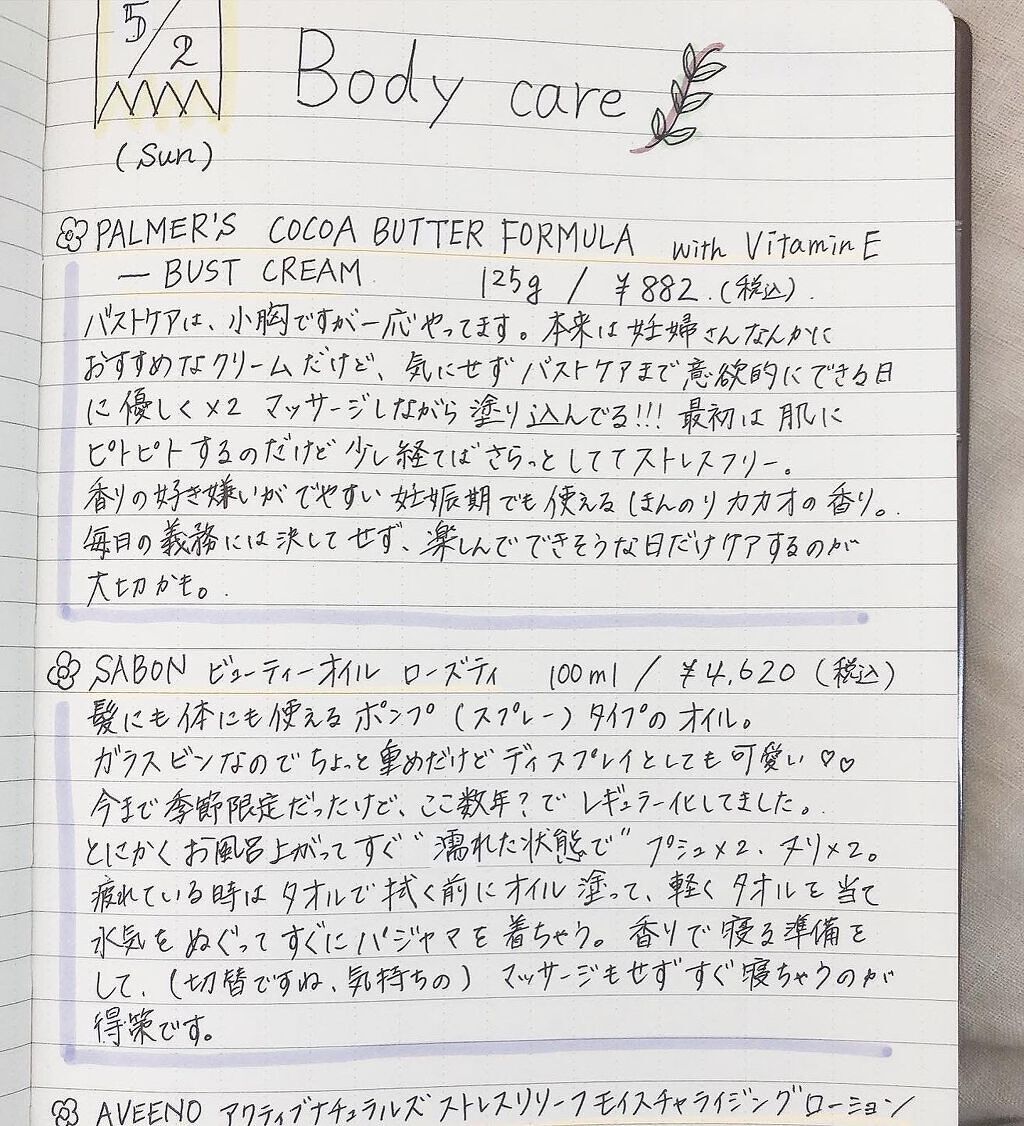 5/2
Body care
(Sun)
PALMER'S COCOA BUTTER FORMULA with Vitamin E
— BUST CREAM 125g / ¥882.(税込).
バストケアは、小胸ですが一応やってます。本来は妊婦さんなんかに
おすすめなクリームだけど、気にせずバストケアまで意欲的にできる日
に優しく×2 マッサージしながら塗り込んでる!!! 最初は肌に
ピトピトするのだけど少し経てばさらっとしててストレスフリー。
香りの好き嫌いがでやすい妊娠期でも使えるほんのりカカオの香り。
毎日の義務には決してせず、楽しんでできそうな日だけケアするのが
大切かも。
SABON ビューティーオイル ローズティ 100ml / ¥4,620 (税込)
髪にも体にも使えるポンプ(スプレー)タイプのオイル。
ガラスビンなのでちょっと重めだけどディスプレイとしても可愛い♡♡
今まで季節限定だったけど、ここ数年?でレギュラー化してました。
とにかくお風呂上がってすぐ"濡れた状態で"プシュ×2、ヌリ×2。
疲れている時はタオルで拭く前にオイル塗って、軽くタオルを当て
水気をぬぐってすぐにパジャマを着ちゃう。香りで寝る準備を
して、(切替ですね、気持ちの)マッサージもせずすぐ寝ちゃうのが
得策です。
AVEENO アクティブナチュラルズ ストレスリリーフモイスチャライジングローション